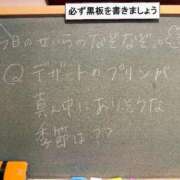 必ず黒板を書きましょう
今日のせいらのなぞなぞ
Q デザートのプリンが
真ん中にありそうな
季節は??